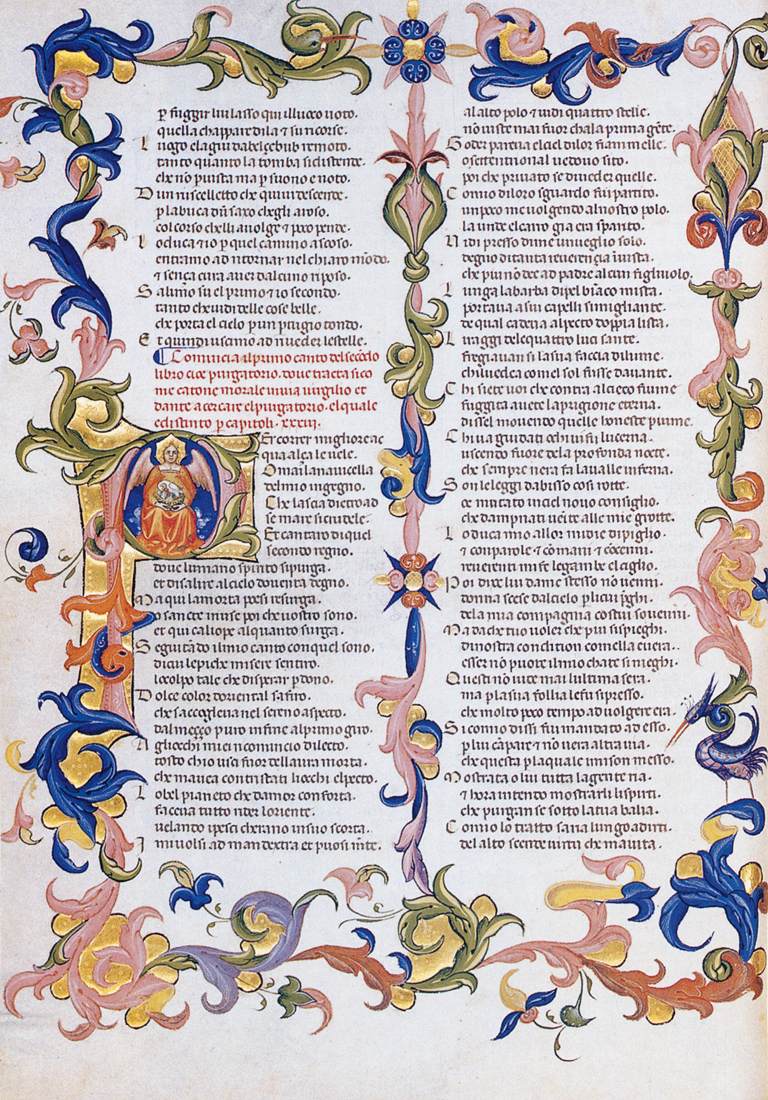 p fuggir lui lasso qui illuoco uoto.
quella chappar dila ⁊ su ricorse.
Luogo e lagiu dabelçebub remoto.
tanto quanto la tomba si distende.
che nō puista ma p suono e noto.
Dun ruscelletto che quiui descende.
p la buca dū saxo chegli a roso.
col corso chelli auolge ⁊ poco pende.
Lo duca ⁊ io p quel camino ascoso.
entramo ad ritornar nel chiaro mōdo.
⁊ sença cura auer dalcuno riposo.
Salimo su el primo ⁊ io secondo.
tanto che uidi delle cose belle.
che porta el cielo p un ptugio tondo.
Et quindi uscimo ad riueder le stelle.
Comincia al primo canto del secōdo
libro cioe purgatorio. doue tracta sico
me catone morale uiuia uirgilio et
dante a cercare el purgatorio. el quale
e distinto p capitoli. xxxiii.
Per correr miglior e ac
qua alça le uele.
Omai la nauicella
del mio ingegno.
Che lascia dietro ad
se mare si crudele.
Et cantaro di quel
secondo regno.
doue lumano spirito si purga.
et di salire al cielo douenta degno.
Ma qui la morta poesi resurga.
o sancte muse poi che uostro sono.
et qui caliope alquanto surga.
Seguitādo il mio canto con quel sono.
di cui le piche misere sentiro.
lo colpo tale che disperar pdono.
Dolce color doriental çafiro.
che saccoglieua nel sereno aspecto.
dal meçço puro infine al primo giro.
Agliocchi miei ricomincio dilecto.
tosto chio usci fuor dellaura morta.
che mauea contristati liocchi el pecto.
Lo bel pianeto che damor conforta.
faceua tutto rider loriente.
uelando i pesci cherano in sua scorta.
I mi uolsi ad man dextra et puosi mēte.
al alto polo ⁊ uidi quattro stelle.
nō uiste mai fuor cha la prima gēte.
Goder pareua el ciel di lor fiammelle.
o septentrional uedouo sito.
poi che priuato se di ueder quelle.
Comio diloro sguardo fui partito.
un poco me uolgendo al nostro polo.
la unde el carro gia era sparito.
Vidi presso di me un ueglio solo.
degno di tanta reuerença ī uista.
che piu nō dee ad padre alcun figliuolo.
Lunga la barba di pel biāco mista.
portaua a suoi capelli simigliante.
de qual cadeua al pecto doppia lista.
Li raggi dele quatro luci sante.
fregiauan si la sua faccia di lume.
chi uedea comel sol fusse dauante.
Chi siete uoi che contra al cieco fiume
fuggita auete la prigione eterna.
dissel mouendo quelle honeste piume.
Chi ua guidati o chi ui fu lucerna.
uscendo fuore dela profonda nocte.
che sempre nera fa la ualle inferna.
Son le leggi dabisso cosi rotte.
o e mutato in ciel nouo consiglio.
che dampnati uenite alle mie grotte.
Lo duca mio allor mi die di piglio.
⁊ con parole ⁊ cō mani ⁊ cō cenni.
reuerenti mi fe le gambe el ciglio.
Poi dixe lui da me stesso nō uenni.
donna scese dal cielo p li cui pghi.
dela mia compagnia costui souenni.
Ma da che tuo uoler che piu si spieghi.
di nostra condition comella e uera.
esser nō puote il mio cha te si nieghi.
Questi nō uite mai lultima sera.
ma p la sua follia le fu si presso.
che molto poco tempo ad uolger era.
Si comio dissi fui mandato ad esso.
p lui cāpare ⁊ nō uera altra uia.
che questa p la quale mi son messo.
Mostrata o lui tutta la gente ria.
⁊ hora intendo mostrarli li spiriti.
che purgan se sotto la tua balia.
Comio lo tratto saria lungo a dirti.
del alto scende uirtu che maiuta.